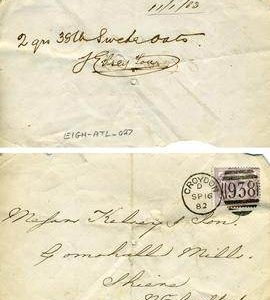 11/1/83
2 qrs 38lb Swede Oats.
EIGH-ATL-027
CROYDON
D
SP 16
82
938
Messrs Kelsey & Son.
Gomshall Mills.
Shiere